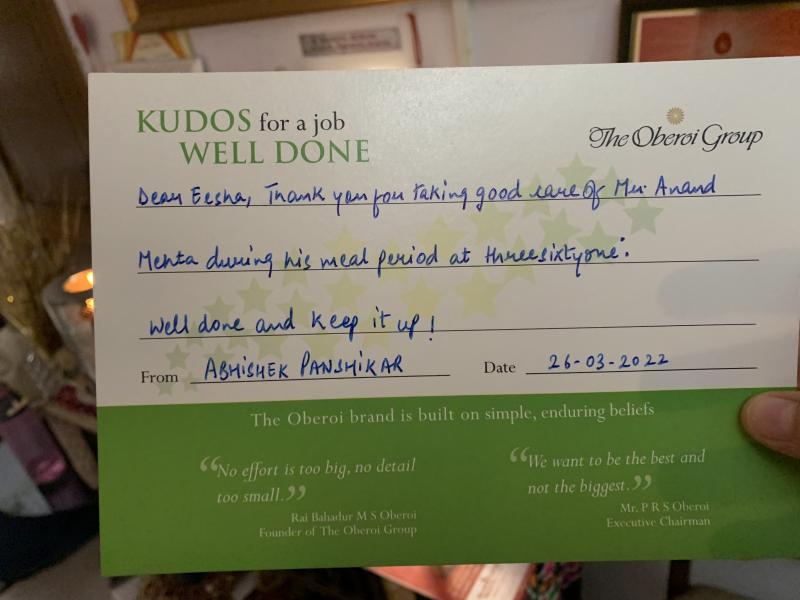 KUDOS for a job
WELL DONE
The Oberoi Group
Dear Eesha, Thank you for taking good care of Mr. Anand
Mehta during his meal period at threesixtyone°.
Well done and keep it up!
From ABHISHEK PANSHIKAR Date 26-03-2022
The Oberoi brand is built on simple, enduring beliefs
“No effort is too big, no detail
too small.”
Rai Bahadur M S Oberoi
Founder of The Oberoi Group
“We want to be the best and
not the biggest.”
Mr. P R S Oberoi
Executive Chairman